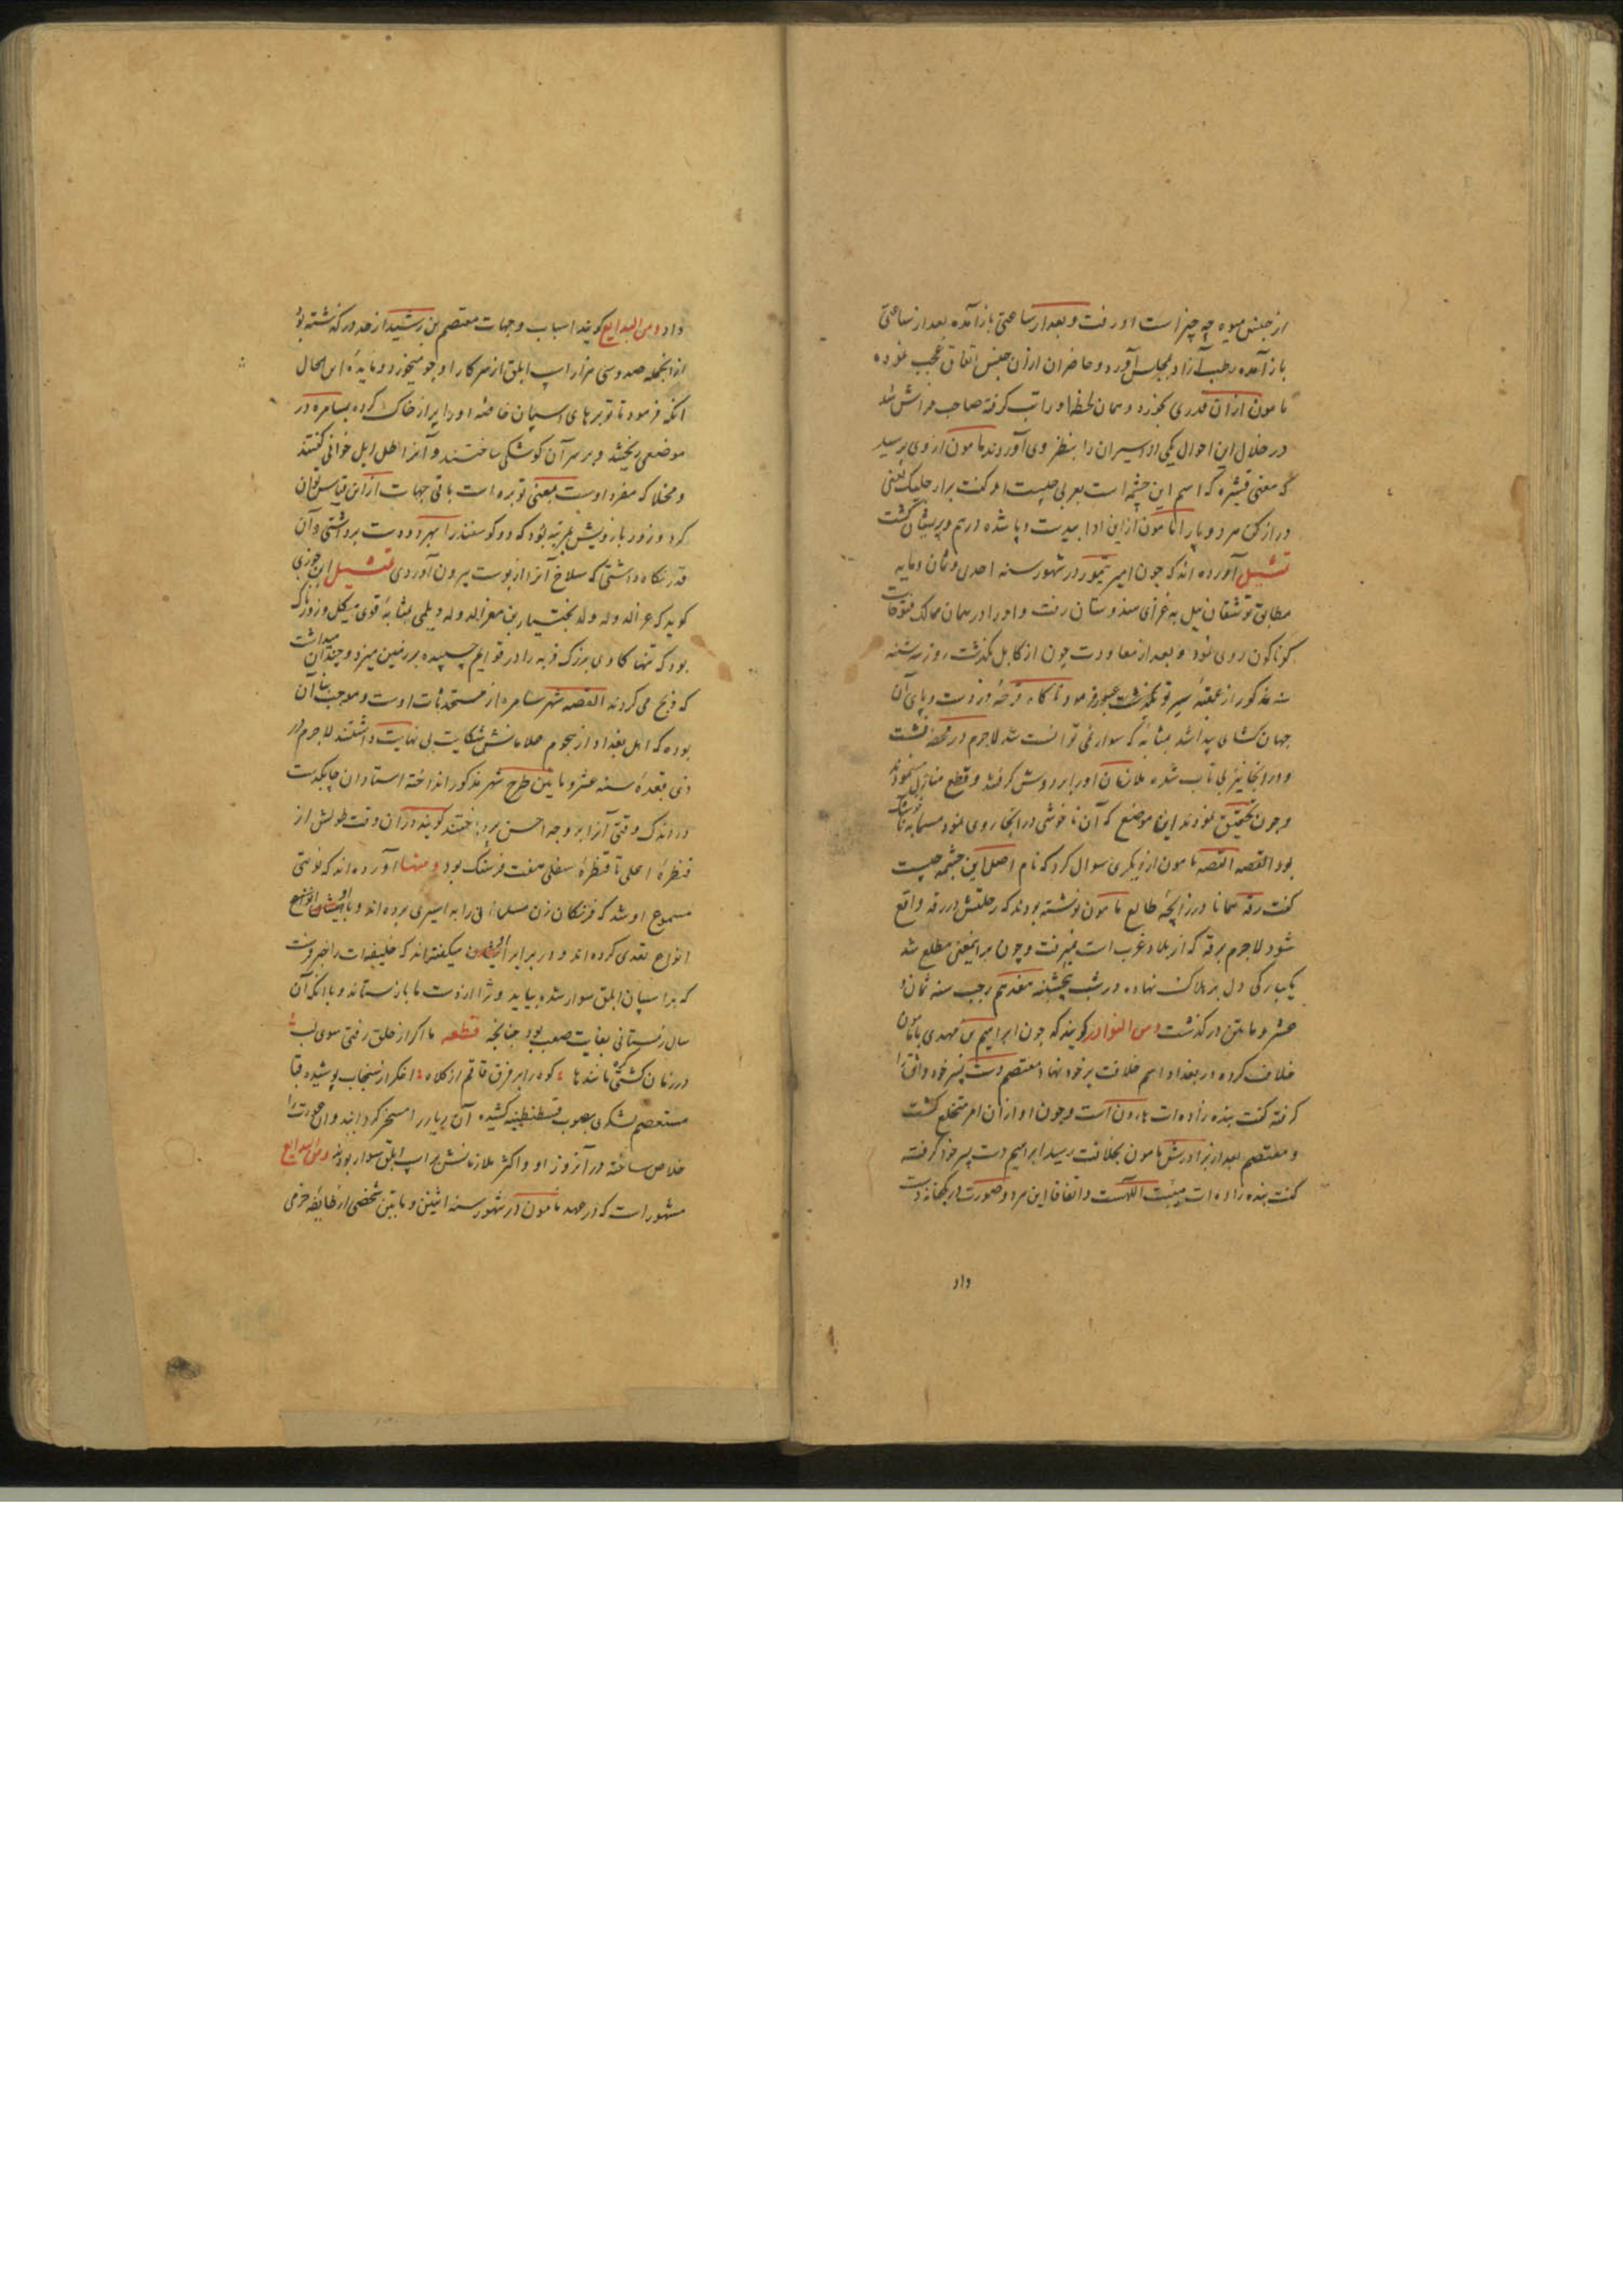 از جنس میوه چه چیز است او رفت و بعد از ساعتی باز آمده بعد از ساعتی
باز آمده رطب آزاد بمجلس آورد و حاضران ازان جنس اتفاق عجب نموده
مامون ازان قدری بخورد و همان لحظه او را تب گرفته صاحب فراش شد
در خلال این احوال یکی از اسیران را بنظر وی آوردند مامون از وی پرسید
که معنی قشیره که اسم این چشمه است بعربی چیست او گفت برار جلیک یعنی
دراز کن مرد و پا را مامون ازین ادا بیدست و پا شده درهم و پریشان گشت
تمثیل آورده اند که چون امیر تیمور در شهور سنه احدی و ثمان و مایه
مطابق توشقان ئیل به غزای هندوستان رفت و او را در همان ممالک فتوحات
کوناکون روی نمود و بعد از معاودت چون از کابل بگذشت روز سه شنبه
سنه مذکور از عقبه عبور فرمود ناگاه قرحه در دست و پای آن
جهان کشای پیدا شد بمثابه که سوار نمی توانست شد لاجرم در محفه نشست
و در و نیز بی تاب شده ملازمان او را بر دوش گرفتند و قطع منازل مینمودند
و چون تحقیق نمودند این موضع که آن ناخوشی در انجا روی نمود مسما به
بود القصه القصه مامون از دیگری سوال کرد که نام اصل این چشمه چیست
گفت رقه همانا در زایجه طالع مامون نوشته بودند که رحلتش در رقه واقع
شود لاجرم برقه که از بلاد غرب است نمیرفت و چون بر اینمعنی مطلع شد
یکبارگی دل بر هلاک نهاده در شب پنجشنبه هفدهم رجب سنه ثمان و
عشر و مایتین در گذشت ومن النوادر گویند که چون ابراهیم بن مهدی با مامون
خلاف کرده در بغداد اسم خلافت بر خود نهاد معتصم دست پسر خود واثق را
گرفته گفت بنده زاده ات هارون است و چون او ازان امر متخلع گشت
و معتصم بعد از برادرش مامون بخلافت رسید ابراهیم دست پسر خود گرفته
گفت بنده زاده ات هبت اللهست و اتفاقا این هر دو صورت در یکخانه دست
داد
داد ومن البدایع گویند اسباب و جهات معتصم بن رشید از حد در گذشته بود
از انجمله صد و سی هزار اسپ ابلق از سرکار او جو میخورد و مایده این الحال
انکه فرمود تا توبرهای اسپان خاصه او را پر از خاک کرده بسامره در
موضعی ریختند و بر سر آن کوشکی ساختند و آنرا طل ابل خوانی گفتند
و مخلا که مفرد اوست بمعنی توبره است باقی جهات از این قیاس توان
کرد و زور بازویش بمرتبه بود که دو گوسفند را بهر دو دست برداشتی و آن
قدر نگاه داشتی که سلاخ آنرا از پوست بیرون آوردی تمثیل ابن جوزی
گوید که عز الدوله ولد بختیار بن معز الدوله دیلمی بمثابه قوی هیکل و زورناک
بود که تنها گاوی بزرگ فربه را در قوایم چسپیده بر زمین میزد و چندان میداشت
که ذبح می کردند القصه شهر سامره از مستحدثات اوست و موجب بنای آن
بوده که اهل بغداد از هجوم غلامانش شکایت بی نهایت داشتند لاجرم در
ذی قعده سنه عشر و مایتین طرح شهر مذکور انداخته استادان چابکدست
در اندک وقتی آنرا بر وجه احسن پرداختند گویند دران وقت طولش از
قنطره اعلی تا قنطره سفلی هفت فرسنک بود ومنها آورده اند که نوبتی
مسموع او شد که فرنگان زن مسلمانی را به اسیری برده اند و با ایشان انواع
انواع تعدی کرده اند و در برابر میگفته اند که خلیفه ات را خبر فرست
که بر اسپان ابلق سوار شده بیاید و ترا از دست ما بازستاند و با انکه آن
سال زمستانی بغایت صعب بود چنانچه قطعه ما اگر از حلق رفتی سوی لب
در زمان گشتی مانند ها کوه را بر فرق قاقم از کلاه اخگر از سنجاب پوشیده قبا
مستعصم لشکری بصوب قسطنطنیه کشیده آن دیار را مسخر گردانید و ان عورت را
خلاص ساخته در آنروز او و اکثر ملازمانش بر اسپ ابلق سوار بودند ومن البدایع
مشهور است که در عهد مامون در شهور سنه اثنین و مایتین شخصی از طایفه خرمی